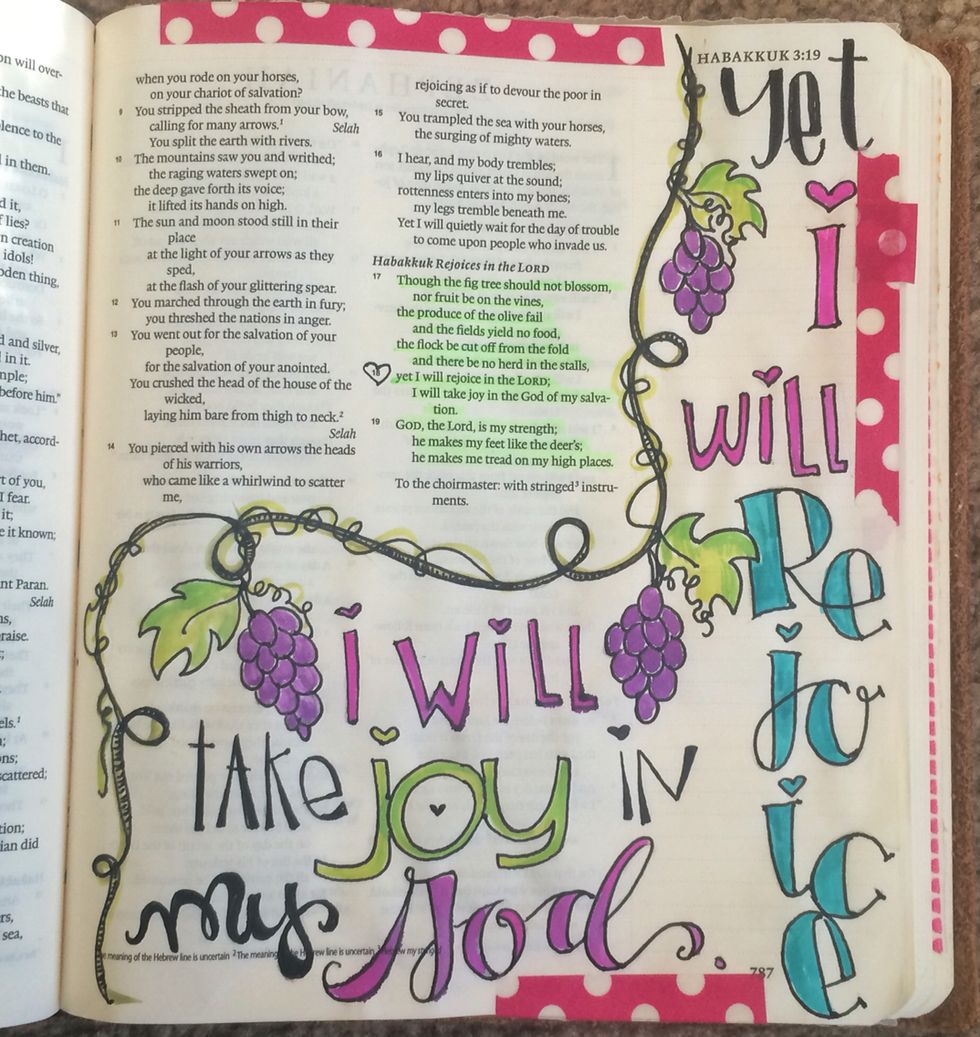 on will over-
the beasts that
lence to the
l in them.
d it,
f lies?
n creation
idols!
oden thing,
d and silver,
l in it.
mple;
before him."
het, accord-
t of you,
I fear.
it;
e it known;
nt Paran.
Selah
ns,
raise.
els.¹
ons;
scattered;
tion;
ian did
rs,
sea,
HABAKKUK 3:19
when you rode on your horses,
on your chariot of salvation?
9 You stripped the sheath from your bow,
calling for many arrows.¹ Selah
You split the earth with rivers.
10 The mountains saw you and writhed;
the raging waters swept on;
the deep gave forth its voice;
it lifted its hands on high.
11 The sun and moon stood still in their
place
at the light of your arrows as they
sped,
at the flash of your glittering spear.
12 You marched through the earth in fury;
you threshed the nations in anger.
13 You went out for the salvation of your
people,
for the salvation of your anointed.
You crushed the head of the house of the
wicked,
laying him bare from thigh to neck.²
Selah
14 You pierced with his own arrows the heads
of his warriors,
who came like a whirlwind to scatter
me,
rejoicing as if to devour the poor in
secret.
15 You trampled the sea with your horses,
the surging of mighty waters.
16 I hear, and my body trembles;
my lips quiver at the sound;
rottenness enters into my bones;
my legs tremble beneath me.
Yet I will quietly wait for the day of trouble
to come upon people who invade us.
Habakkuk Rejoices in the LORD
17 Though the fig tree should not blossom,
nor fruit be on the vines,
the produce of the olive fail
and the fields yield no food,
the flock be cut off from the fold
and there be no herd in the stalls,
18 yet I will rejoice in the LORD;
I will take joy in the God of my salva-
tion.
19 GOD, the Lord, is my strength;
he makes my feet like the deer's;
he makes me tread on my high places.
To the choirmaster: with stringed³ instru-
ments.
yet
i
will
Rejoice
i will
TAKe joy iN
my God.
meaning of the Hebrew line is uncertain ²The meaning of the Hebrew line is uncertain
787